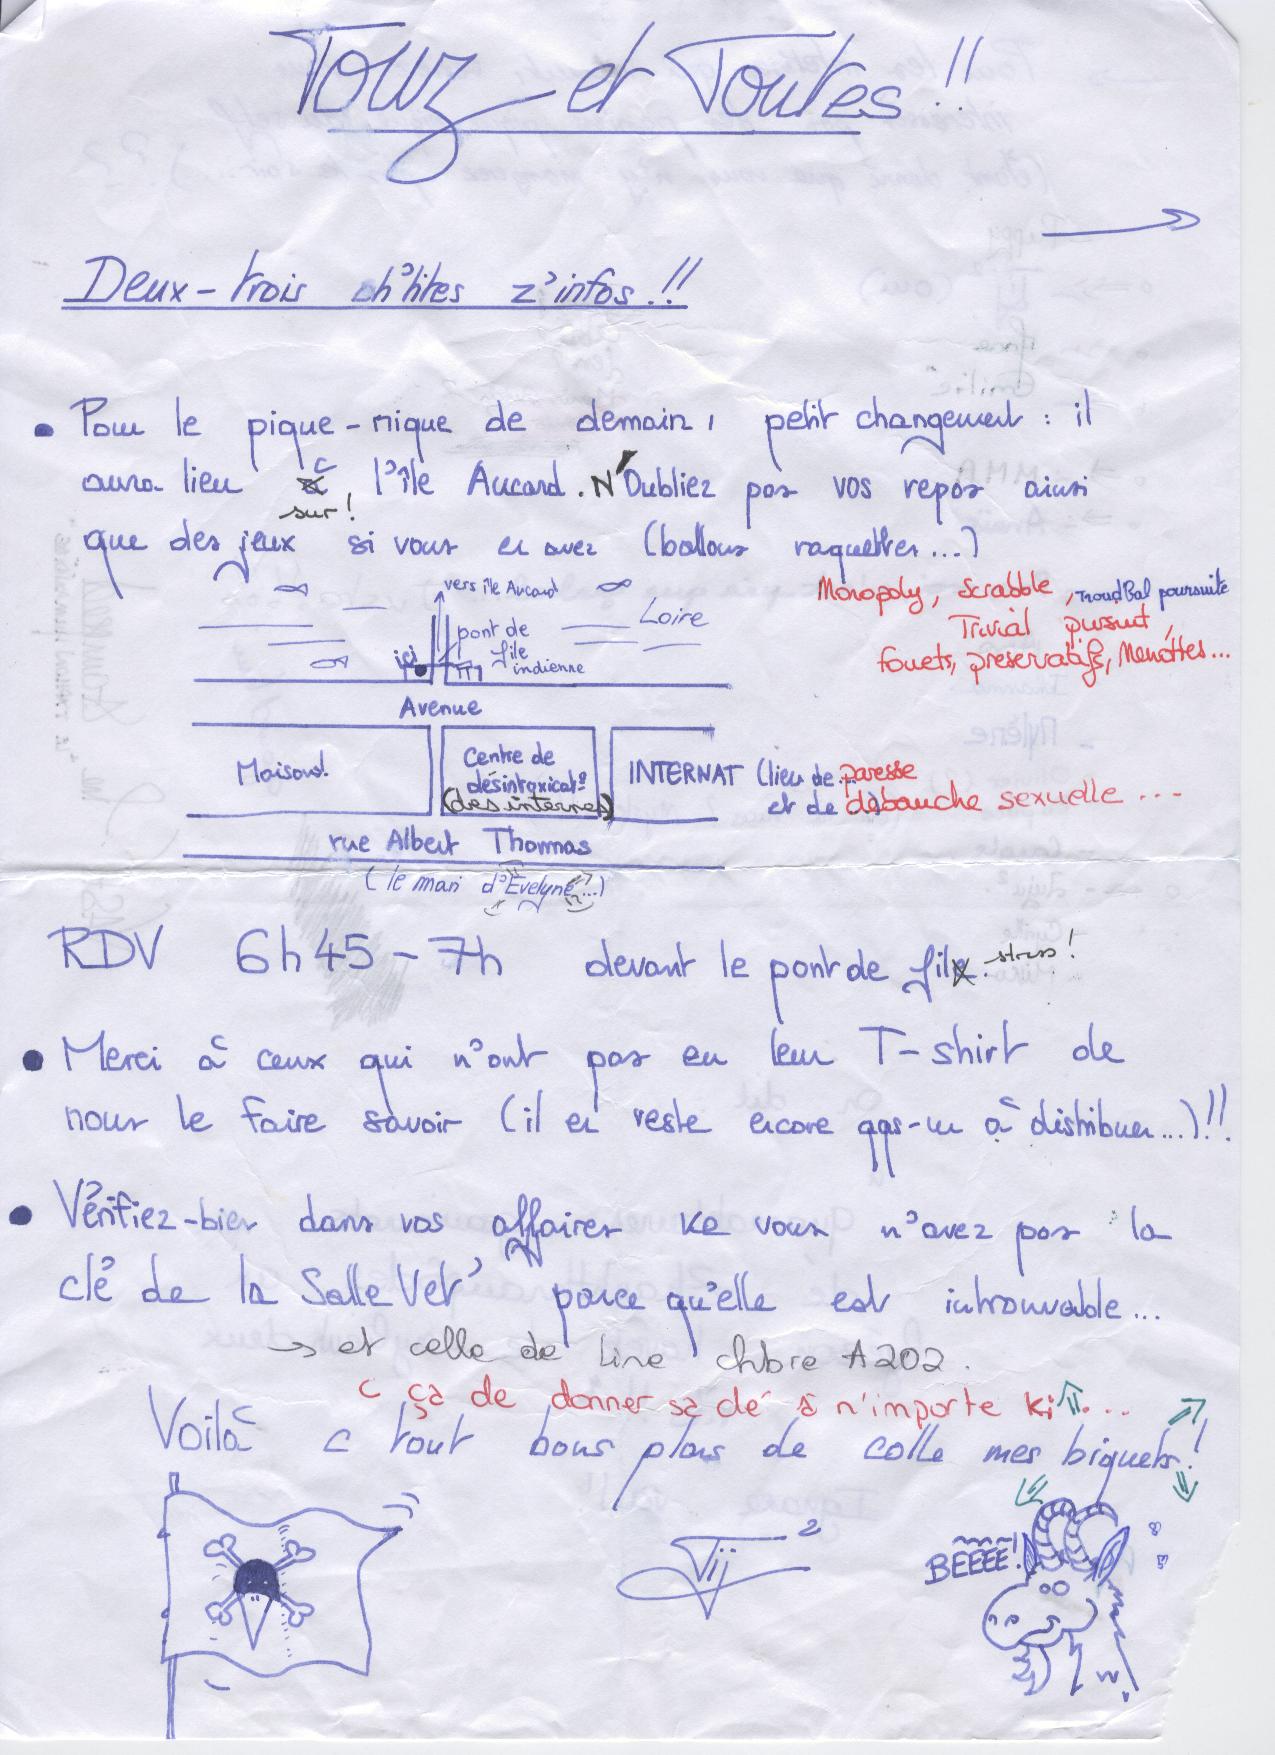 Touz et Toutes!!
Deux-trois ch'tites z'infos!!
• Pour le pique-nique de demain, petit changement : il
aura lieu à l'île Aucard. N'Oubliez pas vos repas ainsi
sur!
que des jeux si vous en avez (ballons raquettes...)
Monopoly, Scrabble, TroudBal poursuite
Trivial pursuit,
fouets, preservatifs, Menottes...
vers île Aucard
Loire
pont de
file
indienne
ici
Avenue
Maisons!
Centre de
désintoxicat°
(des internes)
INTERNAT (lieu de... paresse
et de débauche sexuelle ...
rue Albert Thomas
(le mari d'Evelyne...)
RDV 6h45-7h devant le pont de file. stress!
• Merci à ceux qui n'ont pas eu leur T-shirt de
nous le faire savoir (il en reste encore qqs-un à distribuer...)!!
• Vérifiez-bien dans vos affaires ke vous n'avez pas la
clé de la Salle Vet' parce qu'elle est introuvable...
→ et celle de Line chbre A202.
C ça de donner sa clé à n'importe ki...
Voilà c tout bons plans de colle mes biquets!
BÈÈÈÈ!